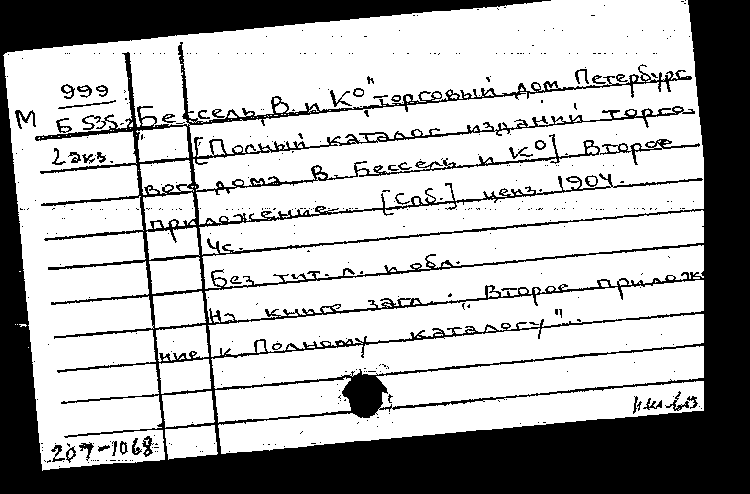 999
М Б 535-2 "Бессель, В. и К°", торговый дом. Петербург
2 экз. [Полный каталог изданий торго-
вого дома В. Бессель и К°]. Второе
приложение. [Спб.], ценз. 1904.
4с.
Без тит. л. и обл.
На книге загл.: "Второе приложе
ние к Полному каталогу".
207-1068